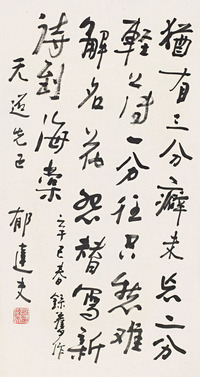 猶有三分癖未忘二分
輕俠一分狂只愁難
解名花怨替寫新
詩到海棠
春錄舊作
先正
郁達夫